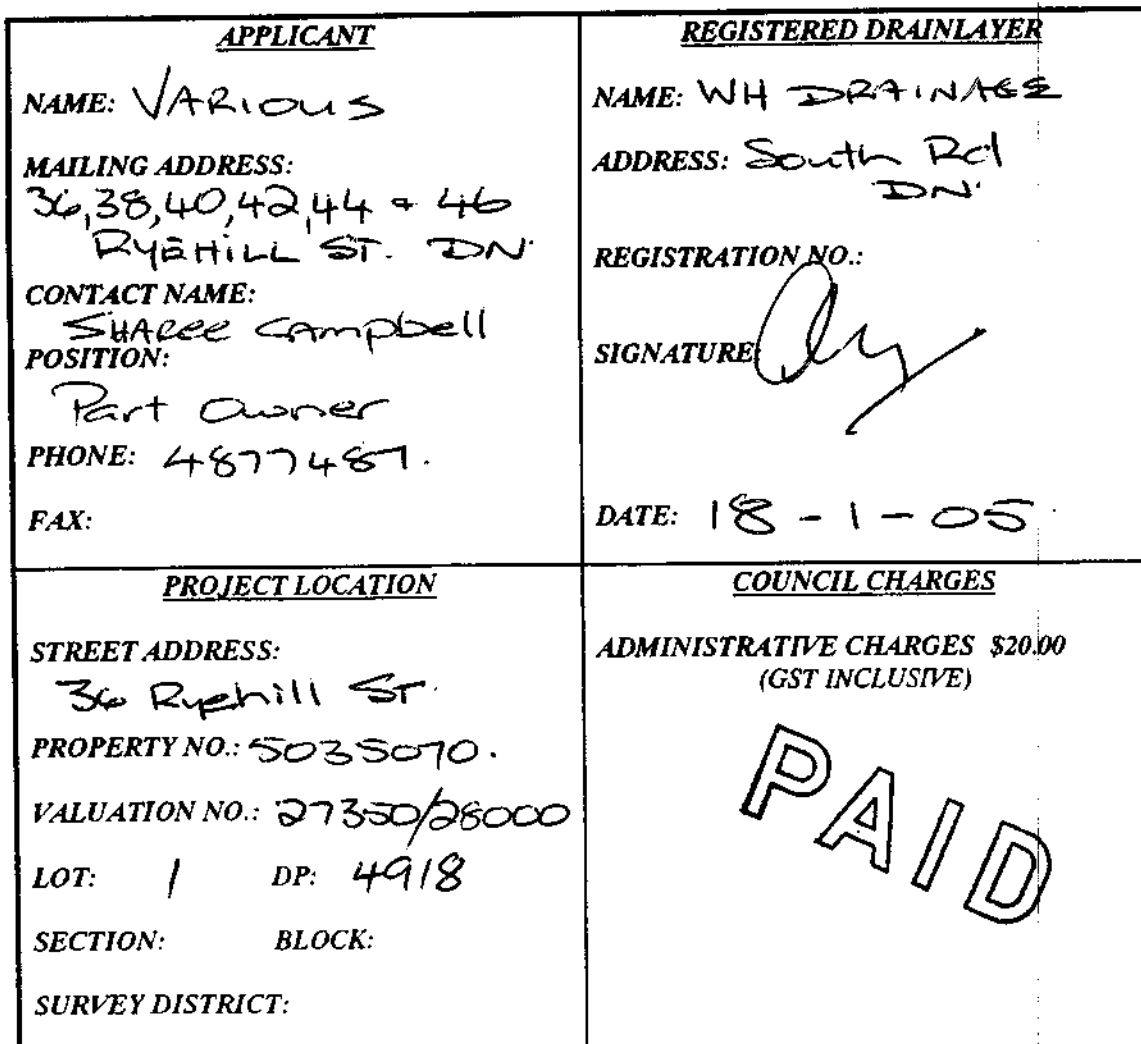 APPLICANT
NAME: VARIOUS
MAILING ADDRESS:
36,38,40,42,44 & 46
RYEHILL ST. DN.
CONTACT NAME:
SHAREE Campbell
POSITION:
Part Owner
PHONE: 4877487.
FAX:
REGISTERED DRAINLAYER
NAME: WH DRAINAGE
ADDRESS: South Rd
DN.
REGISTRATION NO.:
SIGNATURE
DATE: 18 - 1 - 05.
PROJECT LOCATION
STREET ADDRESS:
36 Ryehill ST.
PROPERTY NO.: 5035070.
VALUATION NO.: 27350/28000
LOT: 1 DP: 4918
SECTION: BLOCK:
SURVEY DISTRICT:
COUNCIL CHARGES
ADMINISTRATIVE CHARGES $20.00
(GST INCLUSIVE)
PAID